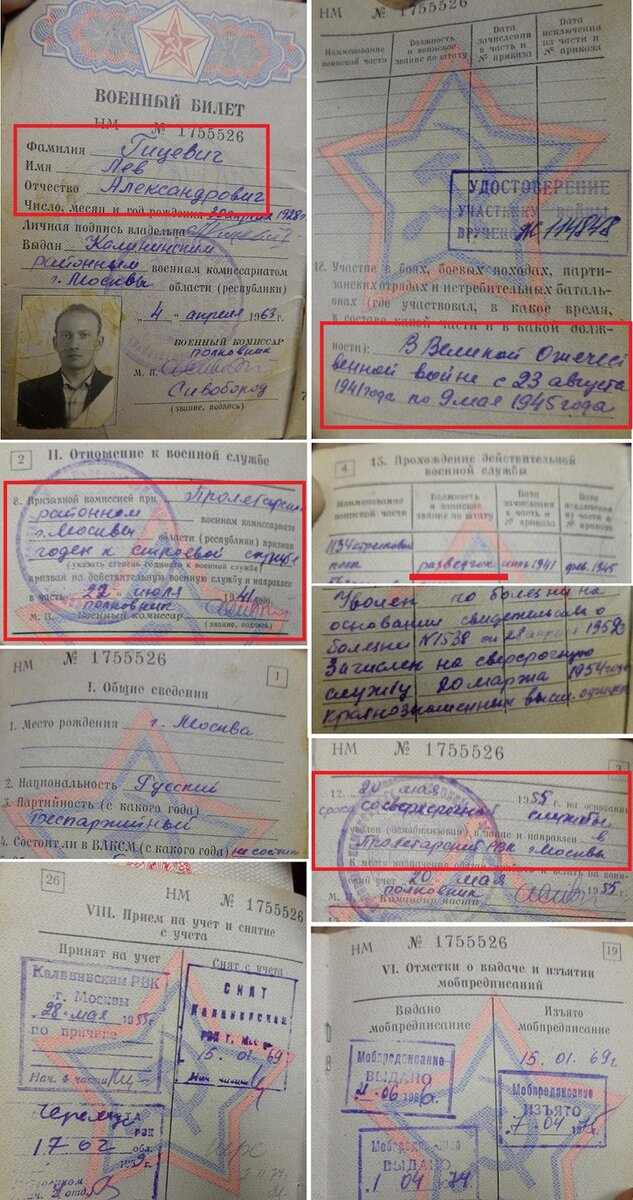 ВОЕННЫЙ БИЛЕТ
НМ № 1755526
Фамилия Гицевич
Имя Лев
Отчество Александрович
Число, месяц и год рождения 20 апреля 1928 г.
Личная подпись владельца
Выдан Калининским
районным военным комиссариатом
г. Москвы области (республики)
„4“ апреля 1963 г.
ВОЕННЫЙ КОМИССАР
полковник
М. П.
Сивобород
(звание, подпись)
НМ № 1755526
Наименование воинской части
Должность и воинское звание по штату
Дата зачисления в часть и № приказа
Дата исключения из части и № приказа
УДОСТОВЕРЕНИЕ
УЧАСТНИКУ ВОЙНЫ
ВРУЧЕНО № 114848
Участие в боях, боевых походах, парти-
занских отрядах и истребительных баталь-
онах (где участвовал, в какое время,
в составе какой части и в какой долж-
ности): В Великой Отечест
венной войне с 23 августа
1941 года по 9 мая 1945 года
2 II. Отношение к военной службе
8. Призывной комиссией при Пролетарском
районном военном комиссариате
г. Москвы области (республики) признан
годен к строевой службе
(указать степень годности к военной службе)
призван на действительную военную службу и направлен
в часть „22“ июля 1941 года.
полковник
М. П. Военный комиссар
(звание, подпись)
4 15. Прохождение действительной
военной службы
Наименование воинской части
Должность и воинское звание по штату
Дата зачисления в часть и № приказа
Дата исключения из части и № приказа
1134 стрелковый
полк разведчик 1941 1945
Уволен по болезни на
основании свидетельства о
болезни N 1538 от 28 1952 г.
Зачислен на сверхсрочную
службу 20 марта 1954 года
Краснознаменных высш. офицер
НМ № 1755526 1
I. Общие сведения
1. Место рождения г. Москва
2. Национальность Русский
3. Партийность (с какого года)
беспартийный
4. Состоял ли в ВЛКСМ (с какого года) не состоял
НМ № 1755526 3
12. „20“ мая 1955 г. на основании
срока сверхсрочной службы
уволен (демобилизован) в запас и направлен в
Пролетарский РВК г. Москвы
К месту назначения обязан
и встать на воин-
ский учет „20“ мая 1955 г.
полковник
М. П. Командир части
26 НМ № 1755526
VIII. Прием на учет и снятие
с учета
Принят на учет
Снят с учета
Калининским РВК
г. Москвы
28 мая 1955 г.
по причине
Нач. 4 части
СНЯТ
Калининским
РВК г. Москвы
15. 01. 69 г.
Нач. части
Черемуш
РВК
17 02
НМ № 1755526 19
VI. Отметки о выдаче и изъятии
мобпредписаний
Выдано
мобпредписание
Изъято
мобпредписание
15. 01. 69 г
Мобпредписание
ВЫДАНО
06 196
Мобпредписание
ИЗЪЯТО
7 04 197
Мобпредписание
ВЫДАНО
1 04 74